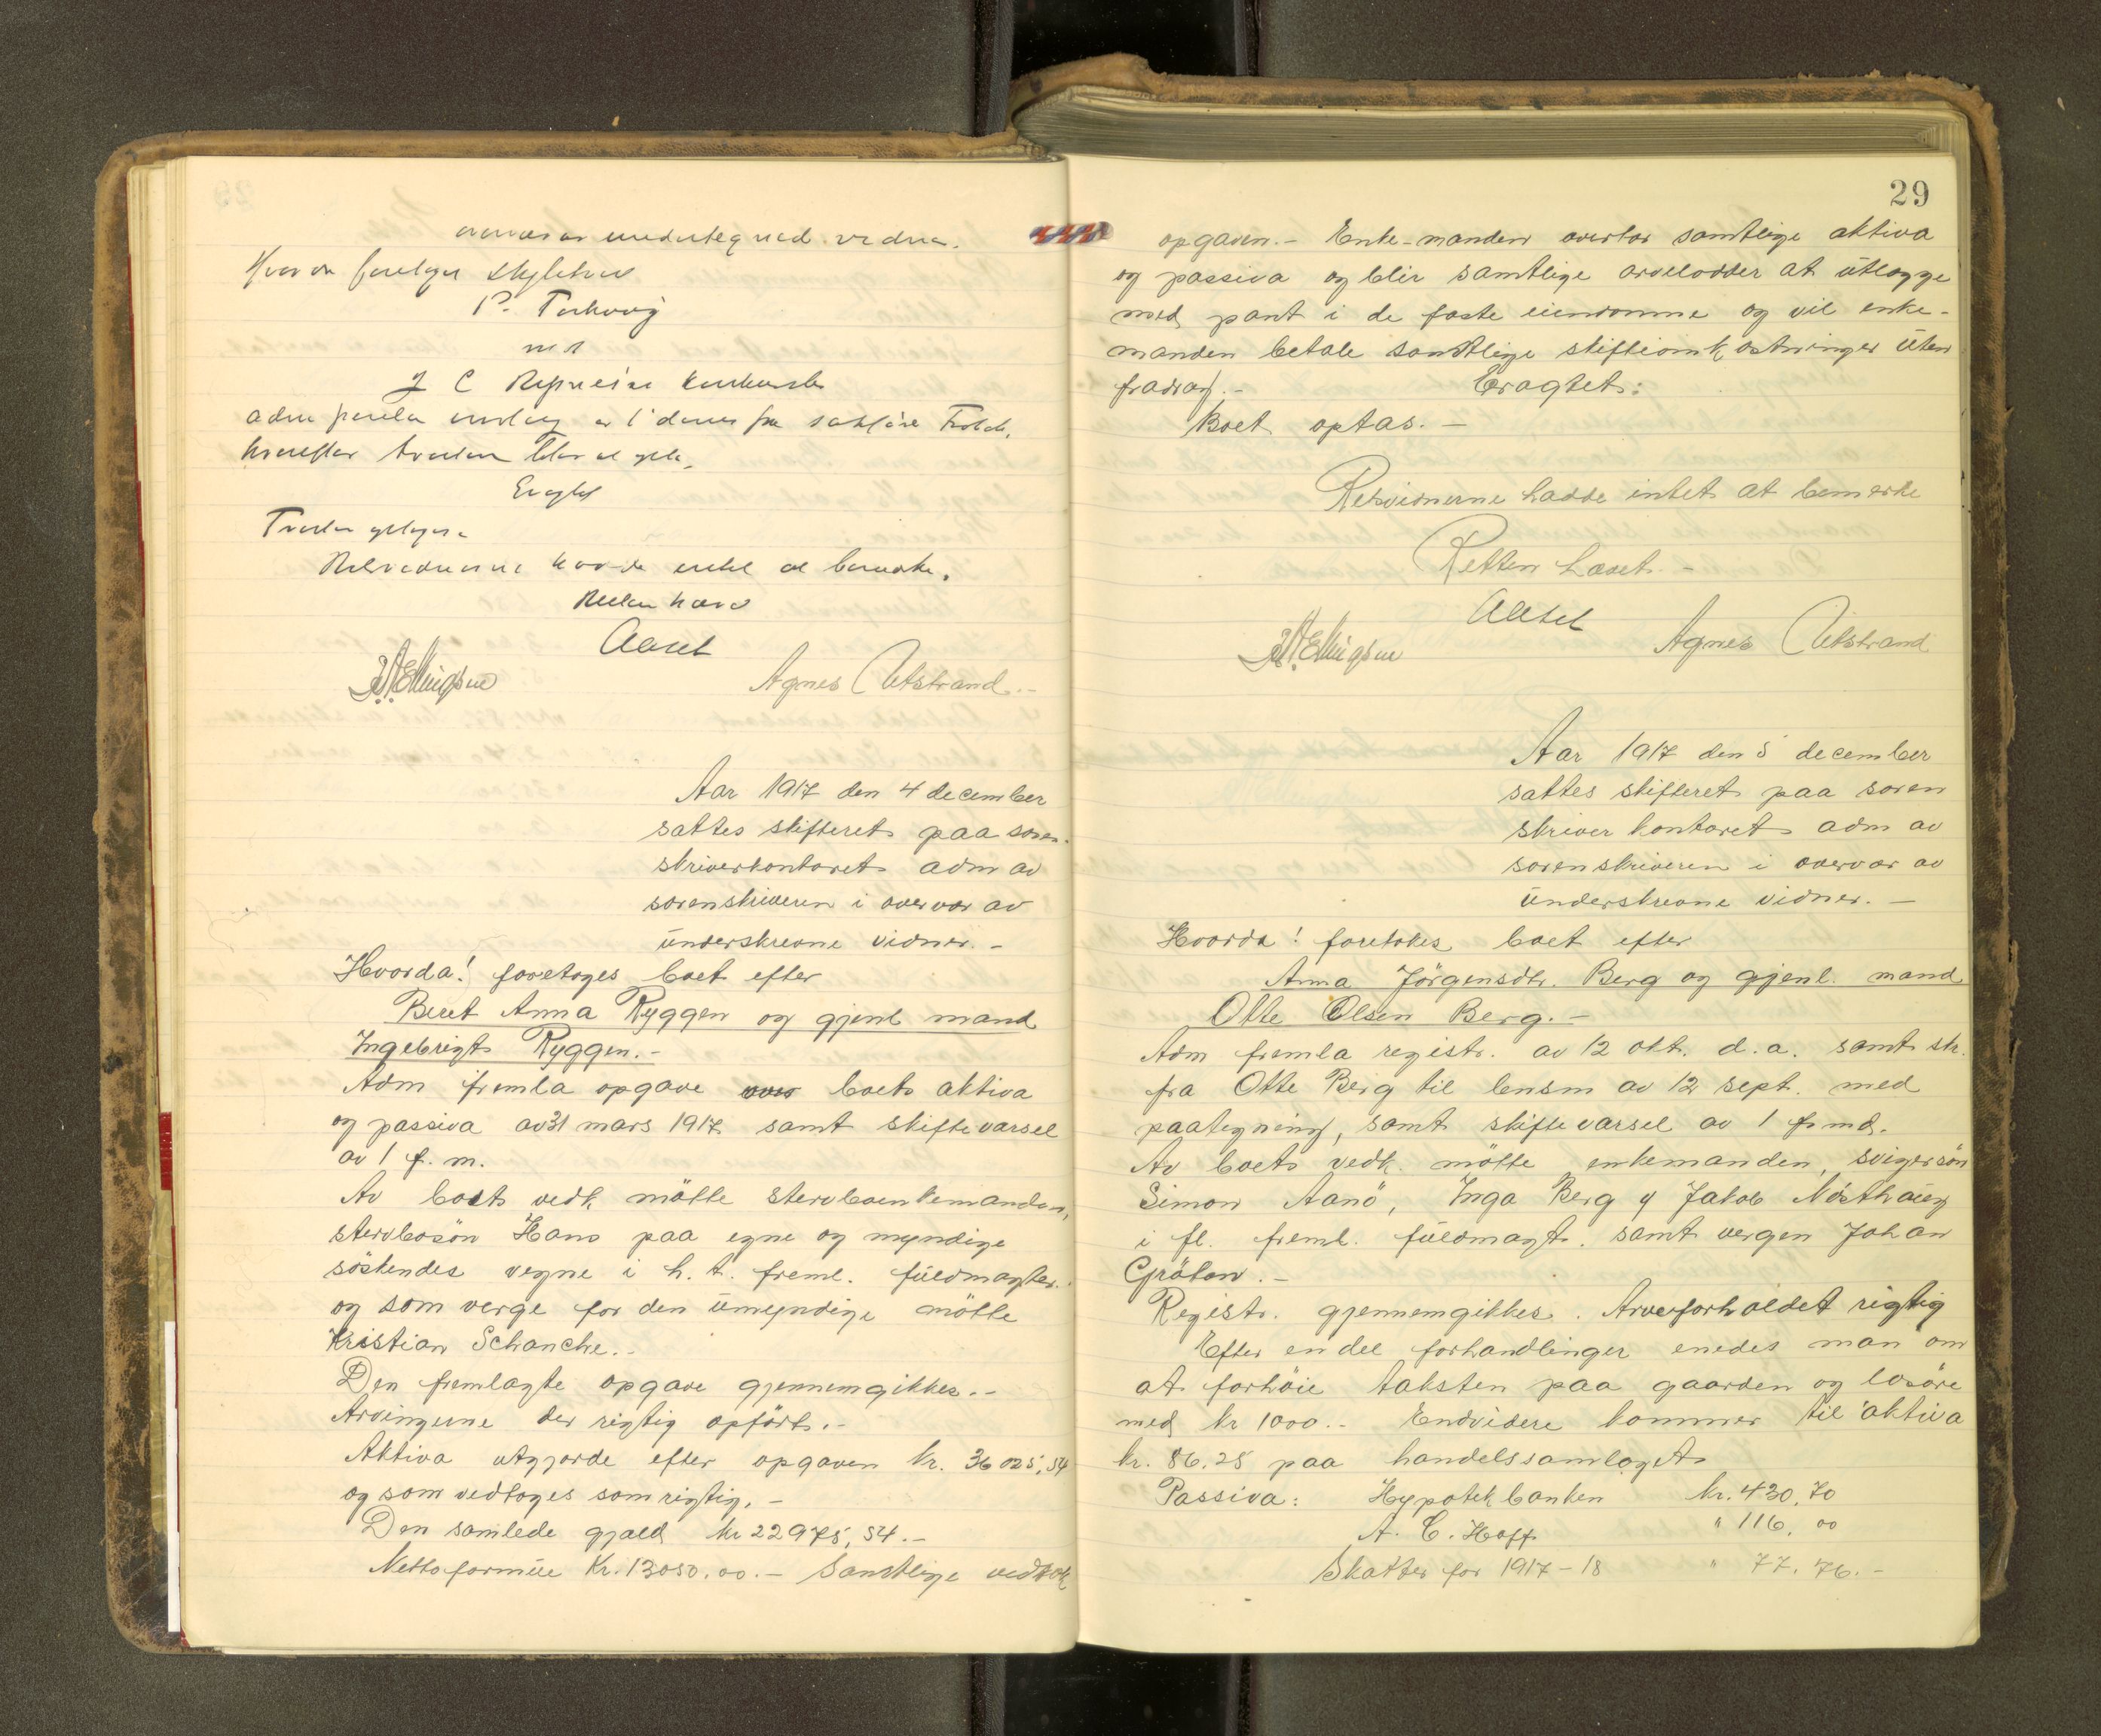 undertegned vidner.
Hvorda foretages skiftebo
P. Torhaug
J C konkursbo
hvorefter
Eragtet
Retsvidnerne havde intet at bemerke.
Retten hævet
Aaset
Ellingsen Agnes Utstrand.-
Aar 1917 den 4 december
sattes skifteret paa soren-
skriverkontoret adm av
sorenskriveren i overvær av
underskrevne vidner.-
Hvorda! foretoges boet efter
Beret Anna Ryggen og gjenl mand
Ingebrigt Ryggen.-
Adm fremla opgave over boets aktiva
og passiva av 31 mars 1917 samt skiftevarsel
av 1 f. m.
Av boets vedk. mötte stervboenkemanden,
stervbosön Hans paa egne og myndige
söskendes vegne i h. t. freml. fuldmagter.
og som verge for den umyndige mötte
Kristian Schanche.-
Den fremlagte opgave gjennemgikkes.-
Arvingerne der rigtig opfört.-
Aktiva utgjorde efter opgaven kr. 36025,54
og som vedtoges som rigtig.-
Den samlede gjæld kr 22975,54.-
Netto formue Kr. 13050.00.- Samtlige vedtok
29
opgaven.- Enke-manden overtar samtlige aktiva
og passiva og blir samtlige arvelodder at utlægge
med pant i de faste eiendomme og vil enke-
manden betale samtlige skifteomkostninger uten
fradrag.- Eragtet:
Boet optas.-
Retsvidnerne hadde intet at bemerke
Retten hævet.-
Aaset
Ellingsen Agnes Utstrand
Aar 1917 den 5 december
sattes skifteret paa soren
skriver kontoret adm av
sorenskriveren i overvær av
underskrevne vidner.-
Hvorda! foretokes boet efter
Anna Jörgensdtr. Berg og gjenl. mand
Otte Olsen Berg.-
Adm fremla registr. av 12 okt. d. a. samt skr.
fra Otte Berg til lensm av 12 sept. med
paategning, samt skiftevarsel av 1 f md.
Av boets vedk. mötte enkemanden, svigersön
Simon Aanö, Inga Berg v Jakob Nösthaug
i fl. freml. fuldmagt. samt vergen Johan
Gröton.-
Registr. gjennemgikkes. Arveforholdet rigtig
Efter en del forhandlinger enedes man om
at forhöie taksten paa gaarden og lösöre
med kr 1000.- Endvidere kommer til aktiva
kr. 86.25 paa handelssamlaget
Passiva: Hypotekbanken kr. 430,70
A. C. Hoff " 116,00
Skatter for 1917-18 " 77.76.-